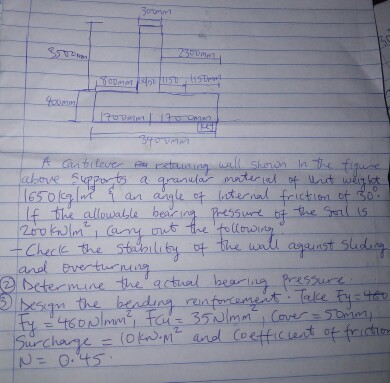 300mm
3500mm
2300mm
800mm 150 1150 1150mm
400mm
1700mm 1700mm
key
3400mm
A Cantilever retaining wall shown in the figure
above supports a granular material of unit weight
1650kg/m³ & an angle of internal friction of 30°.
If the allowable bearing Pressure of the Soil is
200kN/m², Carry out the following
- Check the Stability of the wall against Sliding
and overturning
② Determine the actual bearing Pressure
③ Design the bending reinforcement. Take Fy=460
Fy = 460N/mm², Fcu = 35N/mm², Cover = 50mm,
Surcharge = 10kN.M² and Coefficient of friction
N = 0.45.